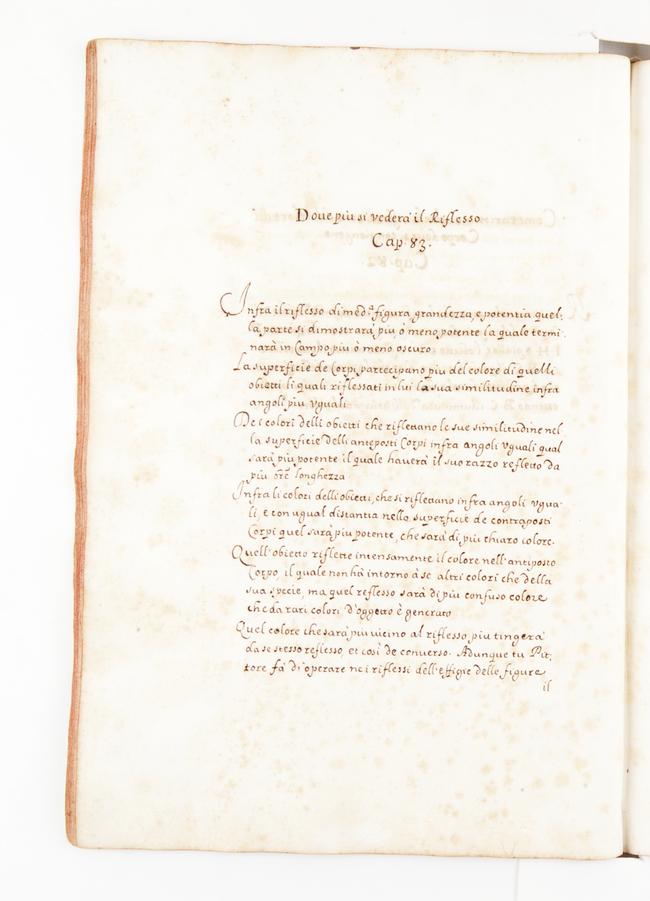 Doue piu si vederà il Riflesso
Cap. 83.
Infra il riflesso di med.ª figura, grandezza, e potentia quel-
la parte si dimostrarà piu, ò meno potente la quale termi-
narà in Campo piu ò meno oscuro.
La superficie de Corpi partecipano piu del colore di quelli
obietti li quali riflessati in lui la sua similitudine infra
angoli piu vguali
De i colori delli obietti che riflettano le sue similitudine nel
la superficie delli anteposti Corpi infra angoli vguali qual
sarà piu potente il quale hauerà il suo razzo refletto da
piu longhezza
Infra li colori delli obietti, che si riflettano infra angoli vgua-
li, e con vgual distantia nella superficie de contraposti
Corpi quel sarà piu potente, che sarà di piu chiaro colore.
Quell'obietto riflette intensamente il colore nell'antiposto
Corpo, il quale non hà intorno à se altri colori che della
sua specie, ma quel reflesso sarà di piu confuso colore
che da rari colori d'oggetto è generato
Quel colore che sarà piu vicino al riflesso, piu tingerà
da se stesso reflesso, et così de conuerso. Adunque tu Pit-
tore fa' di operare ne i riflessi dell'effigie delle figure
il